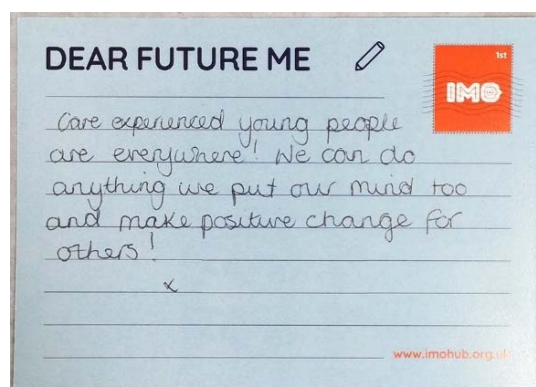 DEAR FUTURE ME
1st
IMO
Care experienced young people
are everywhere! We can do
anything we put our mind too
and make positive change for
others!
x
www.imohub.org.uk